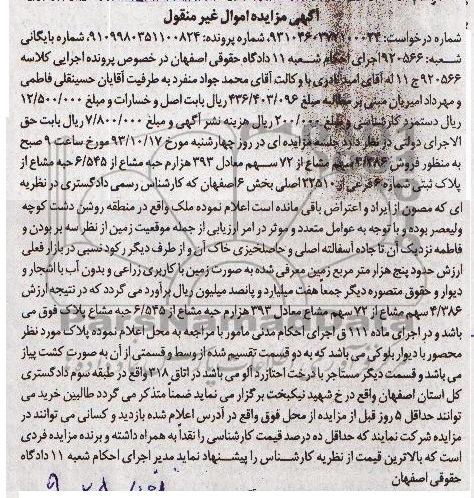 آگهی مزایده اموال غیر منقول
شماره درخواست: ۹۳۱۰۳۶۰۳۷۹۱۰۰۰۳۴، شماره پرونده: ۹۱۰۹۹۸۰۳۵۱۱۰۰۸۲۴، شماره بایگانی
شعبه: ۹۲۰۵۶۶ اجرای احکام شعبه ۱۱ دادگاه حقوقی اصفهان در خصوص پرونده اجرایی کلاسه
۹۲۰۵۶۶ ج ۱۱ له آقای اسید نادری با وکالت آقای محمد جواد منفرد به طرفیت آقایان حسینقلی فاطمی
و مهرداد امیریان مبنی بر مطالبه مبلغ ۴۳۶/۴۰۳/۰۹۶ ریال بابت اصل و خسارات و مبلغ ۱۲/۵۰۰/۰۰۰
ریال دستمزد کارشناسی و مبلغ ۲۰۰/۰۰۰ ریال هزینه نشر آگهی و مبلغ ۷/۸۰۰/۰۰۰ ریال بابت حق
الاجرای دولتی در نظر دارد جلسه مزایده ای در روز چهارشنبه مورخ ۹۳/۱۰/۱۷ ساعت ۹ صبح
به منظور فروش ۴/۳۸۶ سهم مشاع از ۷۲ سهم معادل ۳۹۳ هزارم حبه مشاع از ۶/۵۴۵ حبه مشاع از
پلاک ثبتی شماره ۶ فرعی از ۲۲۵۱۰ اصلی بخش ۶ اصفهان که کارشناس رسمی دادگستری در نظریه
ای که مصون از ایراد و اعتراض باقی مانده است اعلام نموده ملک واقع در منطقه روشن دشت کوچه
ولیعصر بوده و با توجه به عوامل متعدد و موثر در امر ارزیابی از جمله موقعیت زمین از نظر سه بر بودن و
فاصله نزدیک آن تا جاده آسفالته اصلی و حاصلخیزی خاک آن و از طرف دیگر رکود نسبی در بازار فعلی
ارزش حدود پنج هزار متر مربع زمین معرفی شده به صورت زمین با کاربری زراعی و بدون آب با اشجار و
دیوار و حقوق متصوره دیگر جمعا هفت میلیارد و پانصد میلیون ریال برآورد می گردد که در نتیجه ارزش
۴/۳۸۶ سهم مشاع از ۷۲ سهم مشاع معادل ۳۹۳ هزارم حبه مشاع از ۶/۵۴۵ حبه مشاع پلاک فوق می
باشد و در اجرای ماده ۱۱۱ ق اجرای احکام مدنی مامور با مراجعه به محل اعلام نموده پلاک مورد نظر
محصور با دیوار بلوکی می باشد که به دو قسمت تقسیم شده از وسط و قسمتی از آن به صورت کشت پیاز
می باشد و قسمت دیگر مستاجر با درخت احتازرد آلو می باشد در اتاق ۳۱۸ واقع در طبقه سوم دادگستری
کل استان اصفهان واقع در خ شهید نیکبخت برگزار می نماید ضمنا متذکر می گردد طالبین خرید می
توانند حداقل ۵ روز قبل از مزایده از محل فوق واقع در آدرس اعلام شده بازدید و کسانی می توانند در
مزایده شرکت نمایند که حداقل ده درصد قیمت کارشناسی را نقدا به همراه داشته و برنده مزایده فردی
است که بالاترین قیمت از نظریه کارشناس را پیشنهاد نماید مدیر اجرای احکام شعبه ۱۱ دادگاه
حقوقی اصفهان